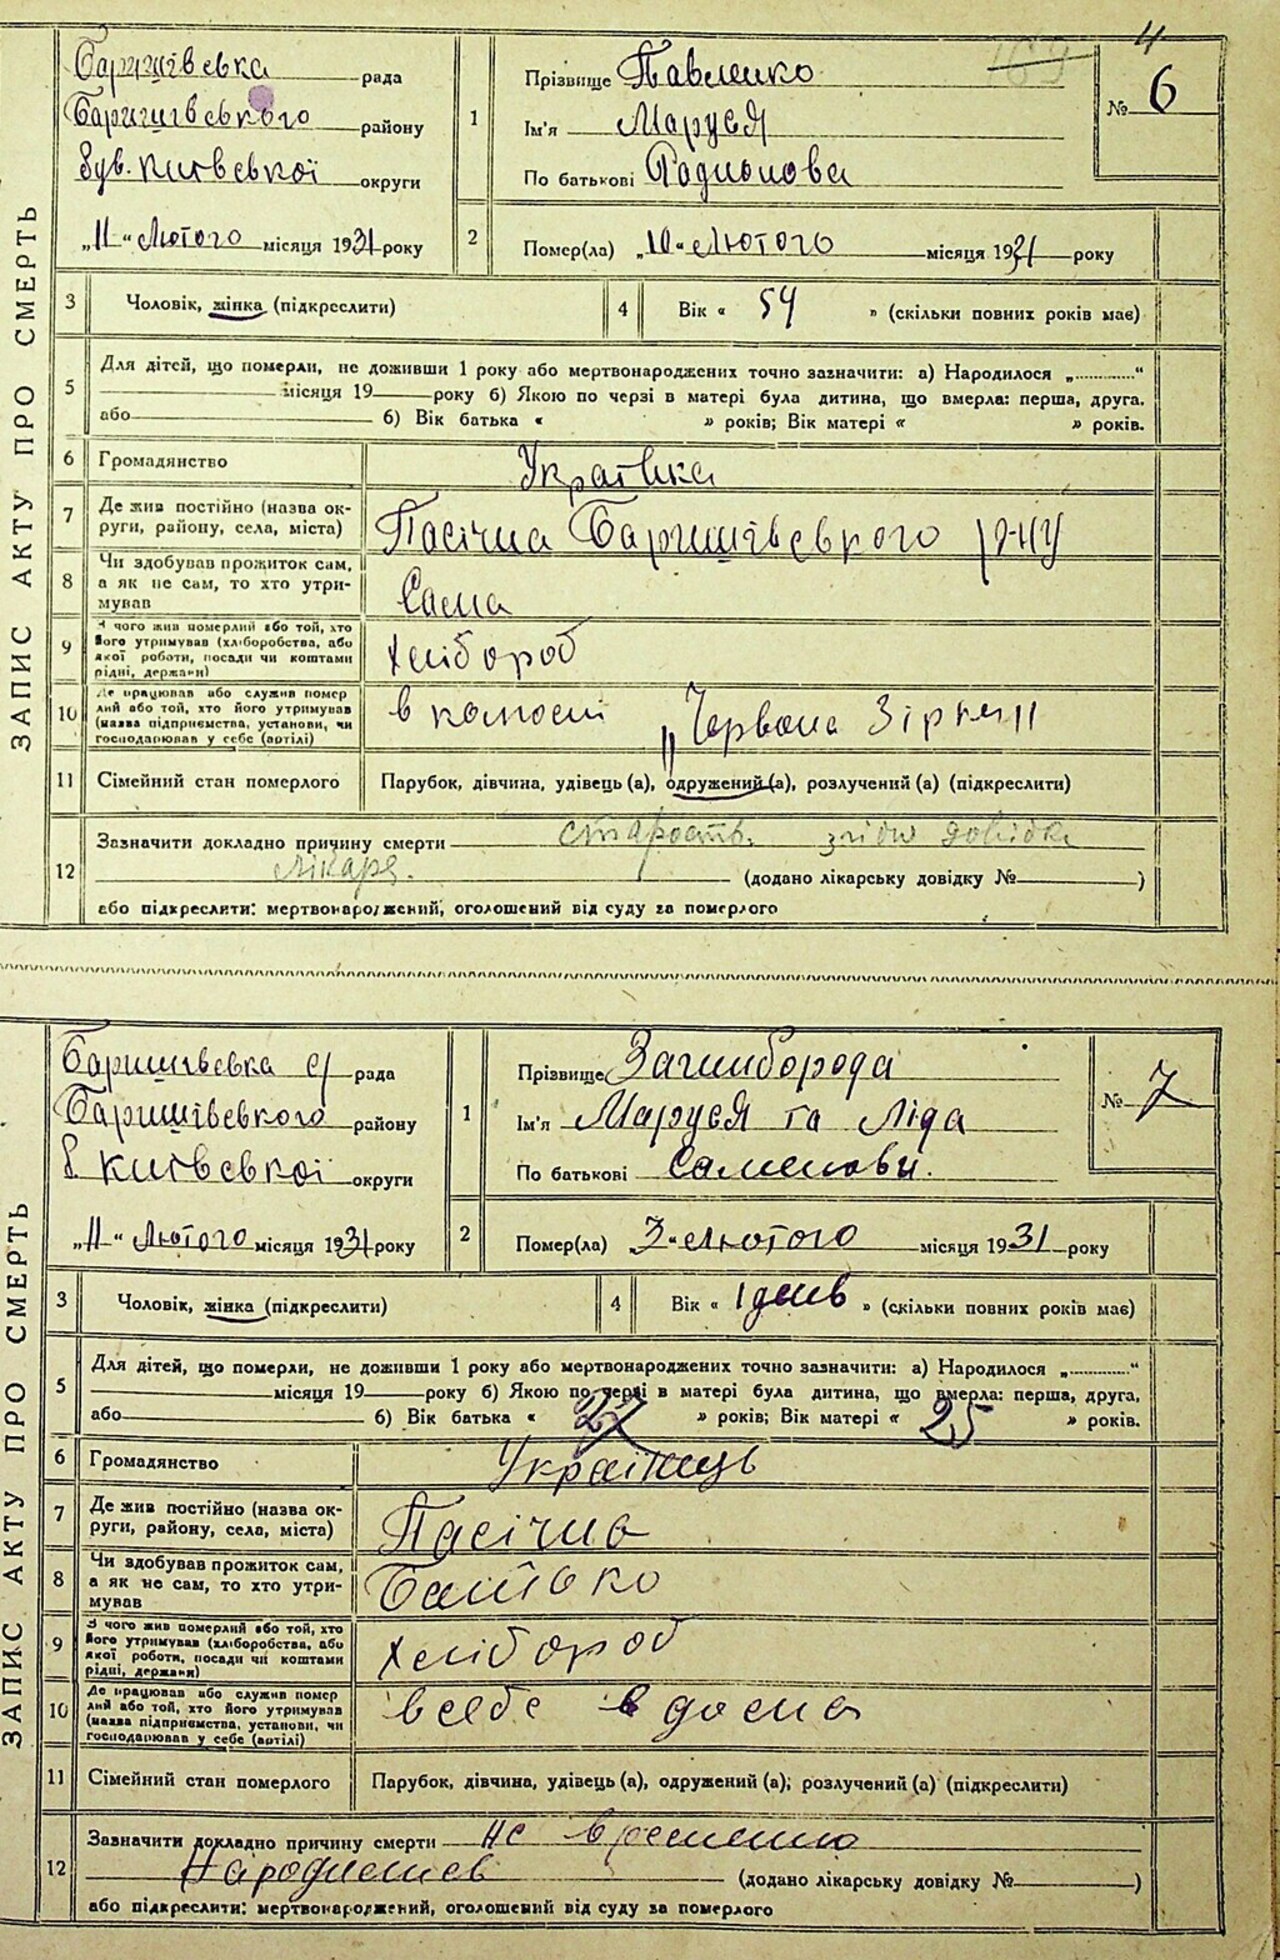 4
169
ЗАПИС АКТУ ПРО СМЕРТЬ
Баришівська рада
Баришівського району
був. Київської округи
„11“ Лютого місяця 1931 року
1
Прізвище Павленко
Ім'я Маруся
По батькові Родионова
№ 6
2
Помер(ла) „10“ Лютого місяця 1931 року
3 Чоловік, жінка (підкреслити)
4 Вік « 54 » (скільки повних років має)
5
Для дітей, що померли, не доживши 1 року або мертвонароджених точно зазначити: а) Народилося „............“
місяця 19 року б) Якою по черзі в матері була дитина, що вмерла: перша, друга.
або б) Вік батька « » років; Вік матері « » років.
6 Громадянство Українка
7 Де жив постійно (назва ок-
руги, району, села, міста) Пасічна Баришівського р-ну
8 Чи здобував прожиток сам,
а як не сам, то хто утри-
мував Сама
9 З чого жив померлий або той, хто
його утримував (хліборобства, або
якої роботи, посади чи коштами
рідні, держави) хлібороб
10 Де працював або служив помер
лий або той, хто його утримував
(назва підприємства, установи, чи
господарював у себе (артілі) в колгоспі „Червона Зірка"
11 Сімейний стан померлого Парубок, дівчина, удівець (а), одружений (а), розлучений (а) (підкреслити)
12 Зазначити докладно причину смерти старость. згідно довідки
лікаря. (додано лікарську довідку № )
або підкреслити: мертвонароджений, оголошений від суду за померлого
ЗАПИС АКТУ ПРО СМЕРТЬ
Баришівська с/ рада
Баришівського району
б. Київської округи
„11“ Лютого місяця 1931 року
1
Прізвище Загниборода
Ім'я Маруся та Ліда
По батькові Саменови.
№ 7
2
Помер(ла) „3“ Лютого місяця 1931 року
3 Чоловік, жінка (підкреслити)
4 Вік « 1 день » (скільки повних років має)
5
Для дітей, що померли, не доживши 1 року або мертвонароджених точно зазначити: а) Народилося „............“
місяця 19 року б) Якою по черзі в матері була дитина, що вмерла: перша, друга,
або б) Вік батька « 27 » років; Вік матері « 25 » років.
6 Громадянство Українець
7 Де жив постійно (назва ок-
руги, району, села, міста) Пасічна
8 Чи здобував прожиток сам,
а як не сам, то хто утри-
мував Батько
9 З чого жив померлий або той, хто
його утримував (хліборобства, або
якої роботи, посади чи коштами
рідні, держави) хлібороб
10 Де працював або служив помер
лий або той, хто його утримував
(назва підприємства, установи, чи
господарював у себе (артілі) в себе в дома
11 Сімейний стан померлого Парубок, дівчина, удівець (а), одружений (а); розлучений (а) (підкреслити)
12 Зазначити докладно причину смерти не временно
(додано лікарську довідку № )
або підкреслити: мертвонароджений, оголошений від суду за померлого